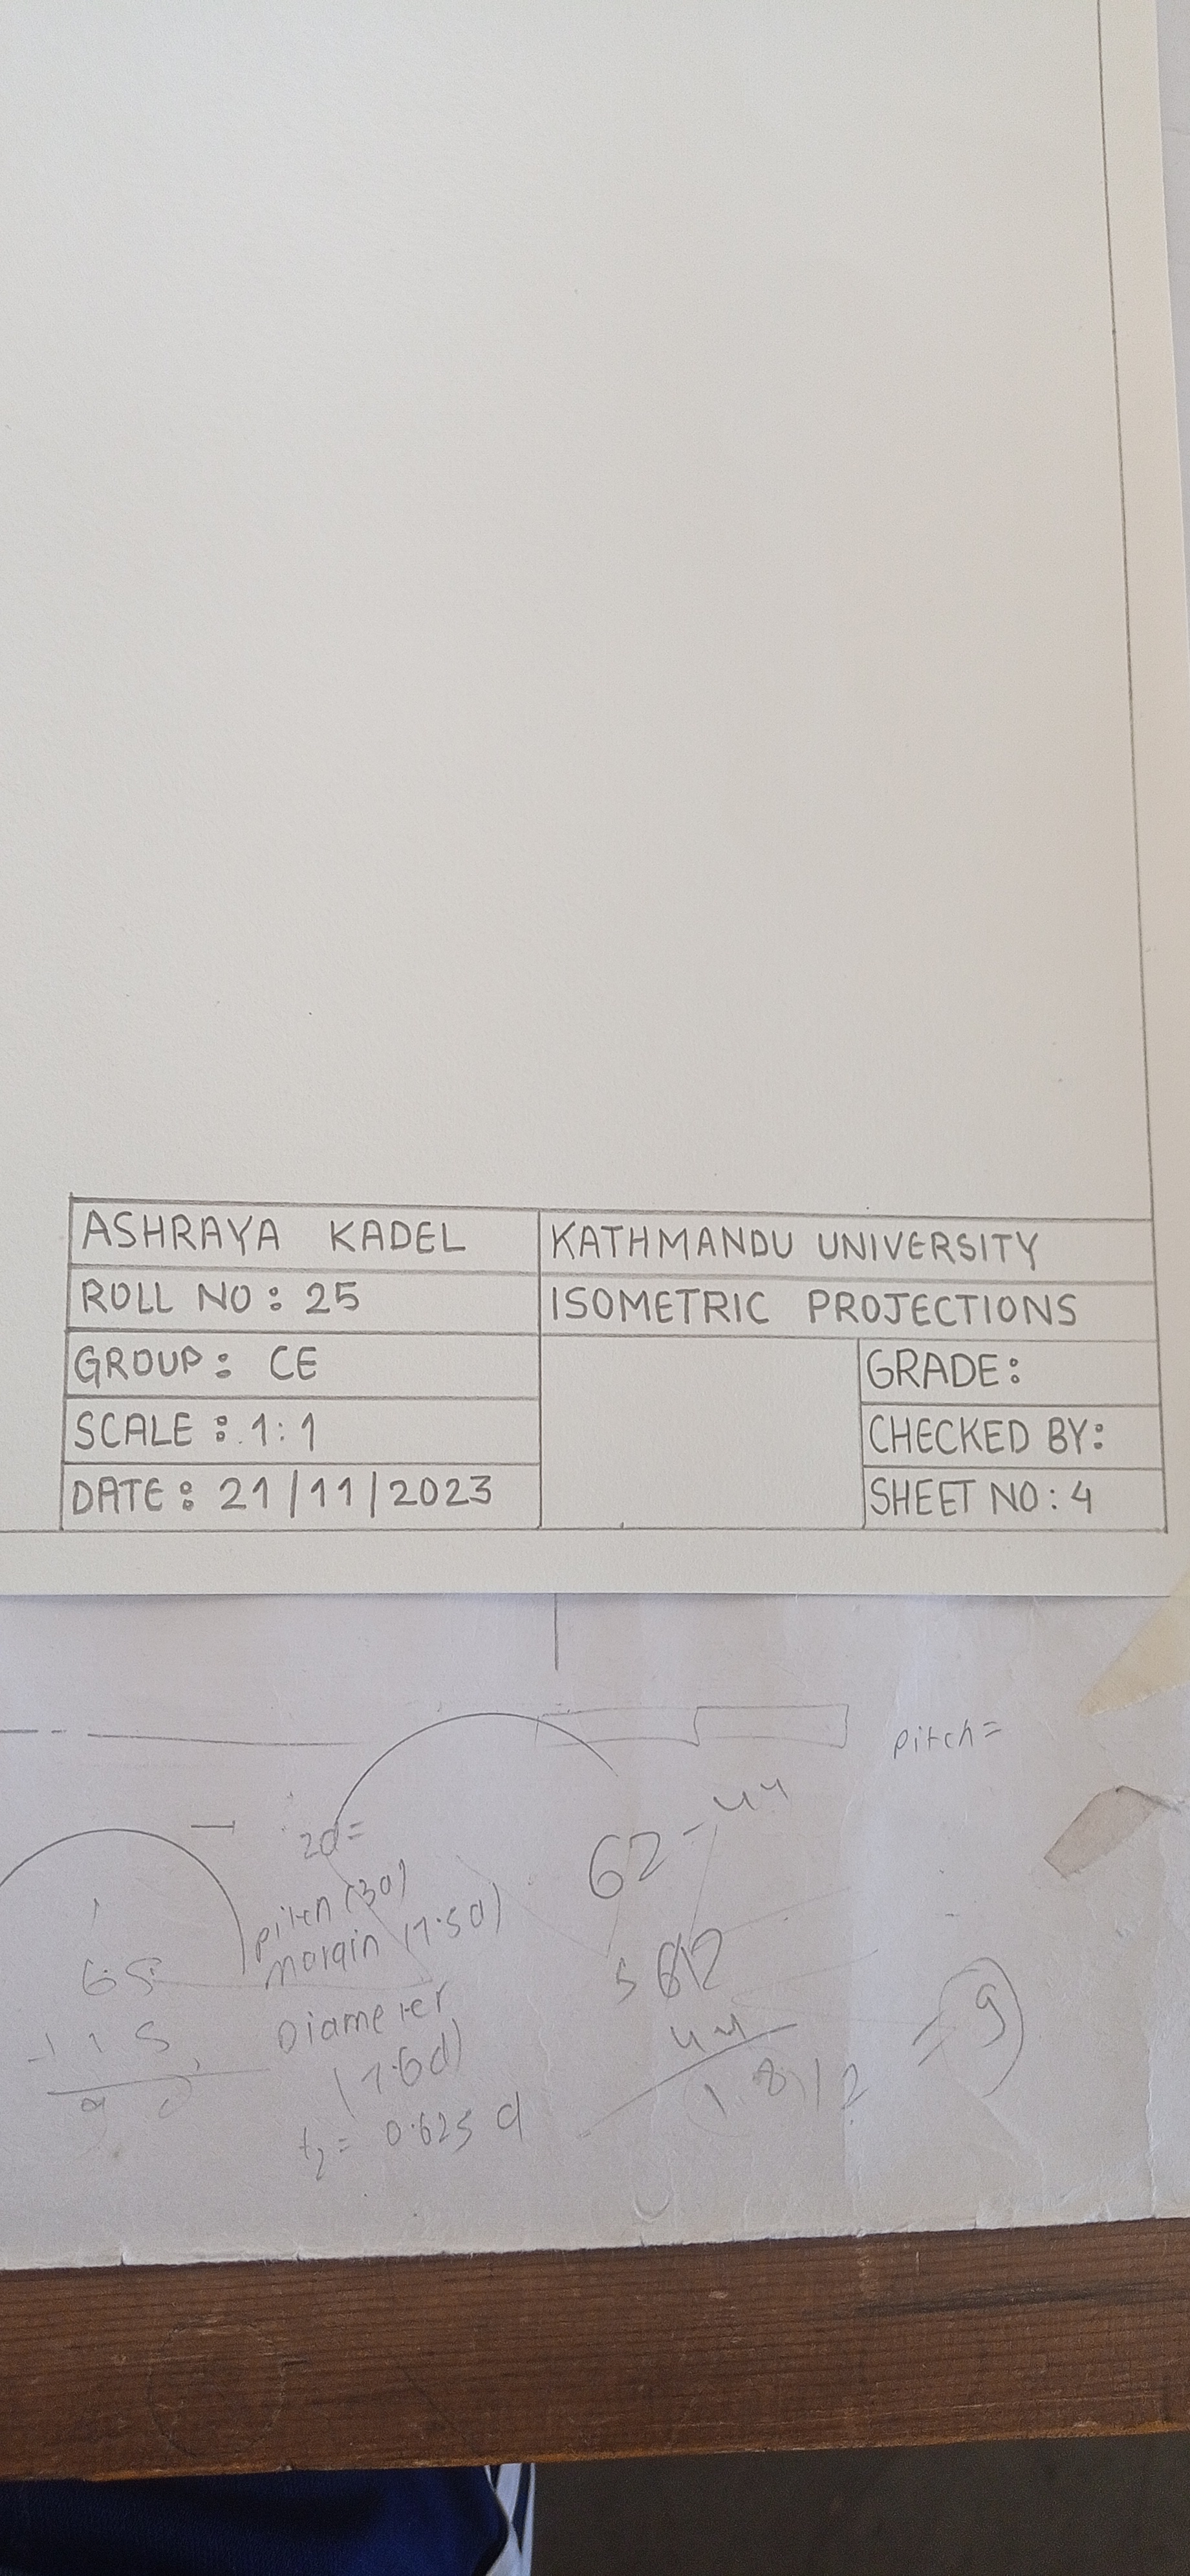 ASHRAYA KADEL
KATHMANDU UNIVERSITY
ROLL NO: 25
ISOMETRIC PROJECTIONS
GROUP: CE
GRADE:
SCALE: 1:1
CHECKED BY:
DATE: 21/11/2023
SHEET NO: 4
pitch=
2d=
62-44
pitch (3d)
margin (1.5d)
65
Diameter
(1.6d)
44
= 9
18/2
= 0.625 d